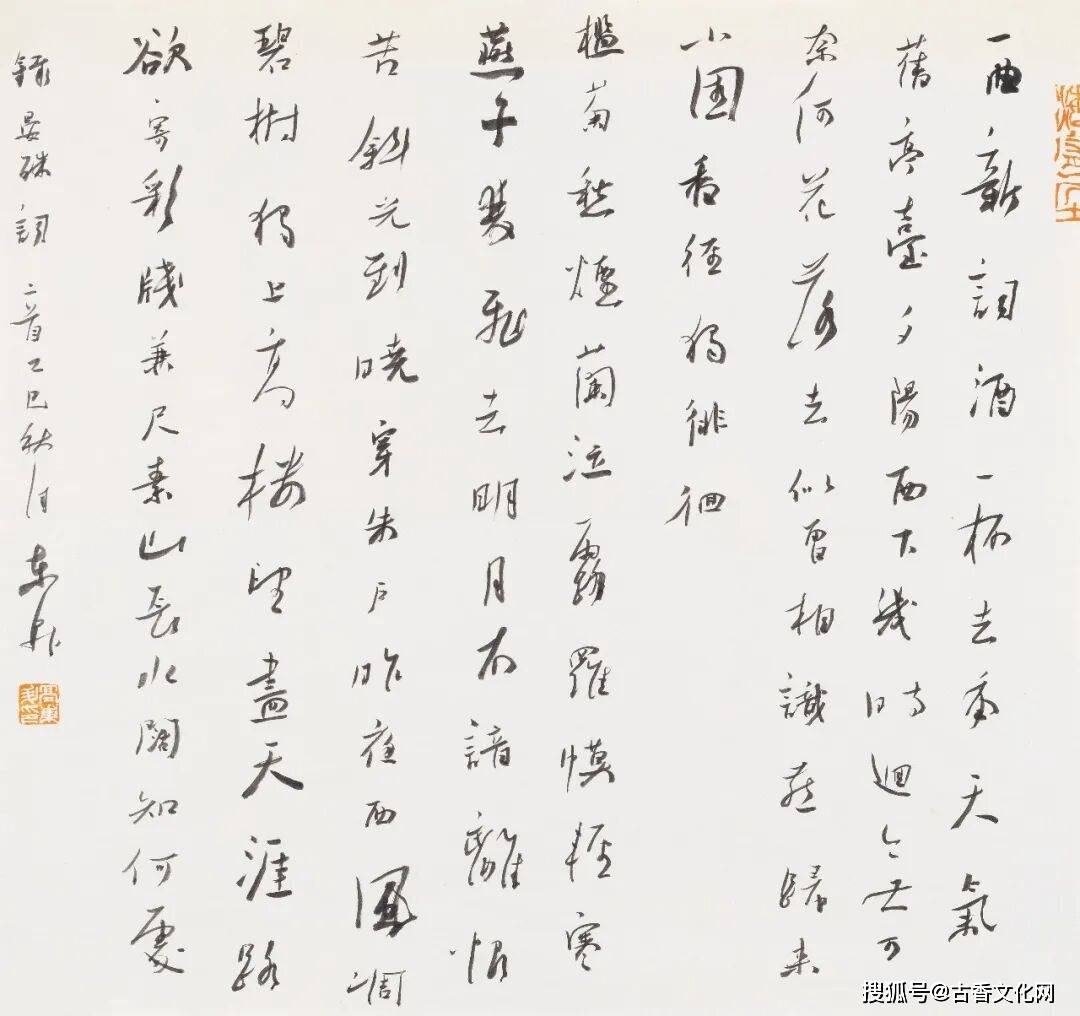 一曲新詞酒一杯去年天氣
舊亭臺夕陽西下幾時迴無可
奈何花落去似曾相識燕歸来
小園香徑獨徘徊
檻菊愁煙蘭泣露羅幙輕寒
燕子雙飛去明月不諳離恨
苦斜光到曉穿朱戶昨夜西風凋
碧樹獨上高樓望盡天涯路
欲寄彩牋兼尺素山長水闊知何處
錄晏殊詞二首乙巳秋月東昇
搜狐号@古香文化网